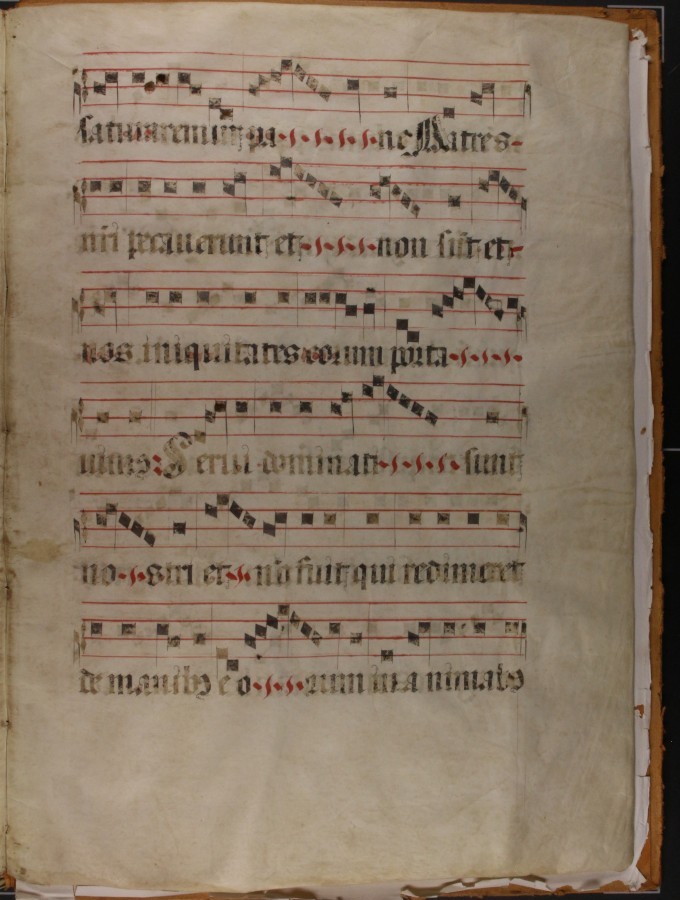 saturaremur pa ne Patres
nri peccauerunt et non sut et
nos iniquitates eorum porta
uimus: Serui dominati sunt
no stri et no fuit qui redimeret
de manibꝫ e o rum in a nimabꝫ